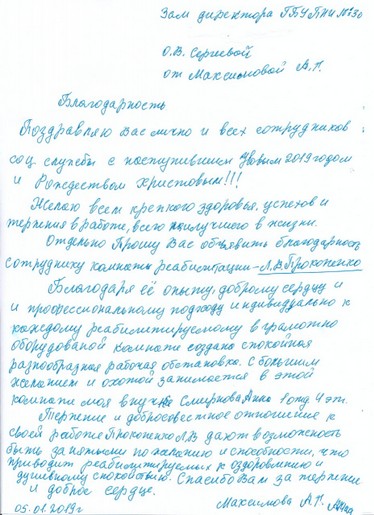 Зам директора ГБУ ПНИ №30
О.В. Сергеевой
от Максимовой А.Г.
Благодарность
Поздравляю Вас лично и всех сотрудников
соц. службы с наступившим Новым 2019 годом
и Рождеством Христовым!!!
Желаю всем крепкого здоровья, успехов и
терпения в работе, всего наилучшего в жизни.
Отдельно Прошу Вас объявить благодарность
сотруднику комнаты реабилитации - Л.В Прокопенко
Благодаря её опыту, доброму сердцу и
и профессиональному подходу индивидуально к
каждому реабилитируемому в грамотно
оборудованой комнате создана спокойная
разнообразная рабочая обстановка. С большим
желанием и охотой занимается в этой
комнате моя внучка Смирнова Анна 1 отд 4 эт.
Терпение и добросовестное отношение к
своей работе Прокопенко Л.В дают возможность
быть занятыми по желанию и способности, что
приводит реабилитируемых к оздоровлению и
душевному спокойствию. Спасибо Вам за терпение
и доброе сердце.
05.01.2019г Максимова А.Г.